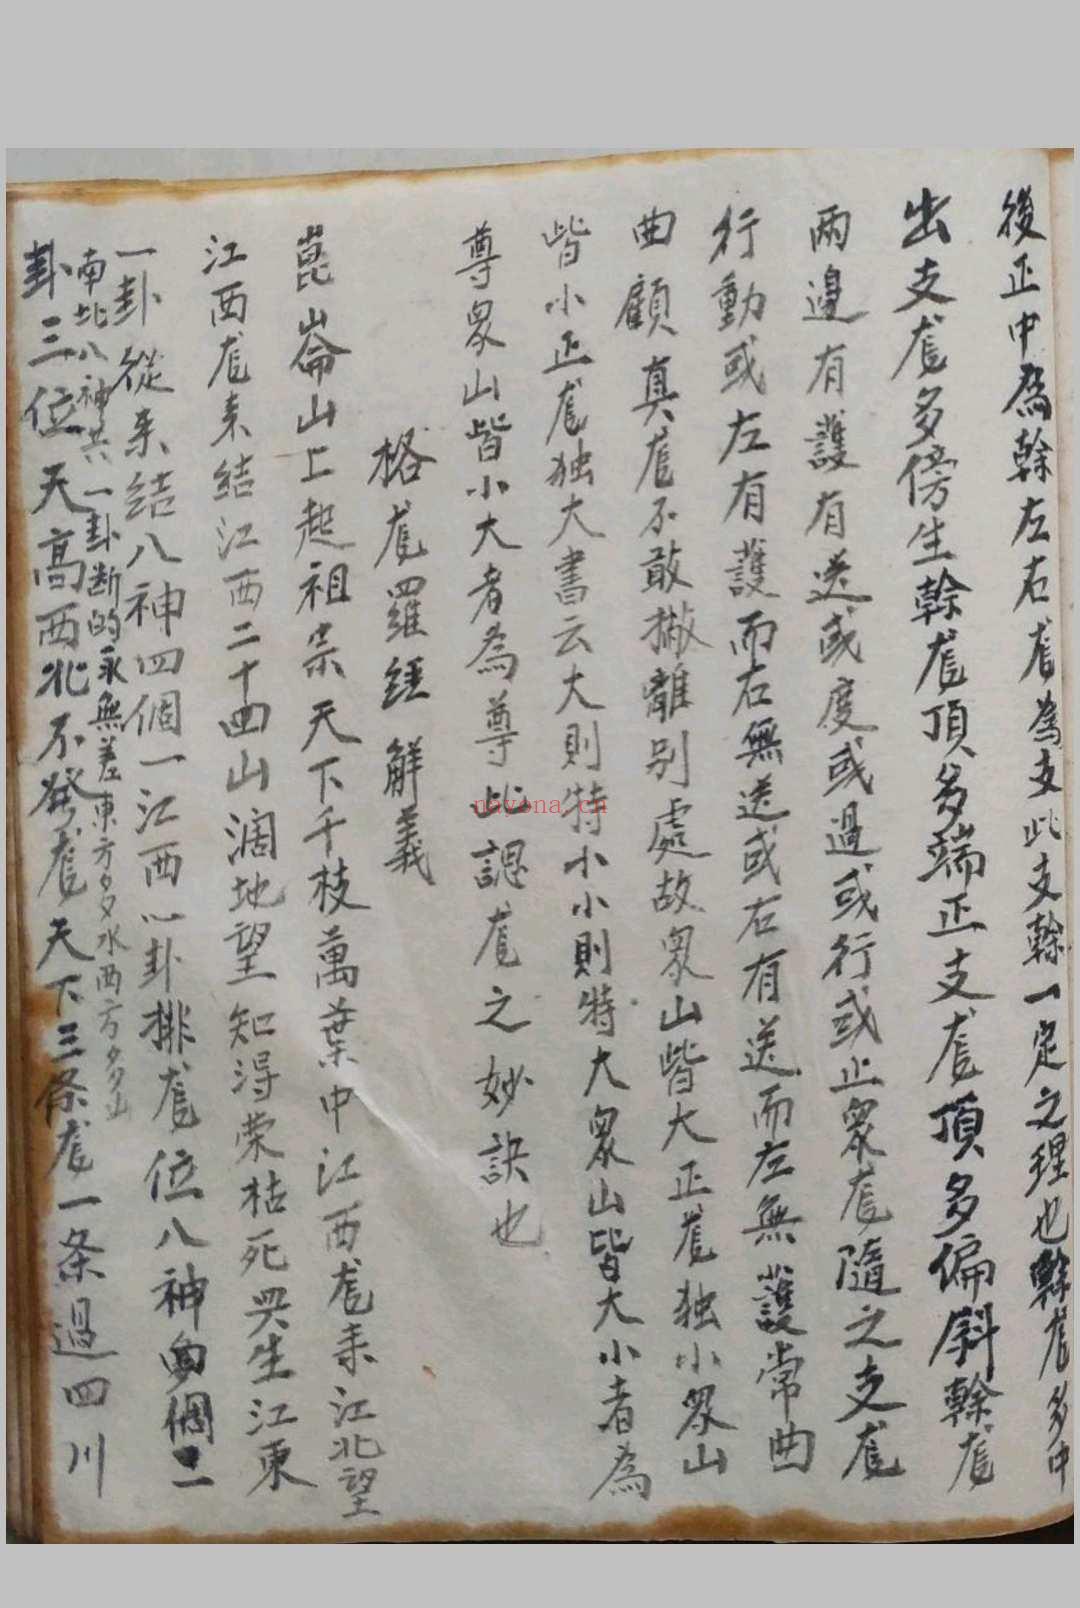 後正中為幹左右龙為支此支幹一定之理也幹龙多中
出支龙多傍生幹龙頂多端正支龙頂多偏斜幹龙
兩邊有護有送或度或過或行或止衆龙隨之支龙
行動或左有護而右無送或右有送而左無護常曲
曲顧真龙不敢撇離别處故衆山皆大正龙独小衆山
皆小正龙独大書云大則特小小則特大衆山皆大小者為
尊衆山皆小大者為尊此認龙之妙訣也
格龙羅經解義
崑崙山上起祖宗天下千枝萬葉中江西龙来江北望
江西龙来結江西二十四山濶地望知得荣枯死與生江東
一卦從来结八神四個一江西一卦排龙位八神四個二
南北八神共一卦断的永無差東方多水西方多山
卦三位天高西北不發龙天下三條龙一条過四川
nayona.cn